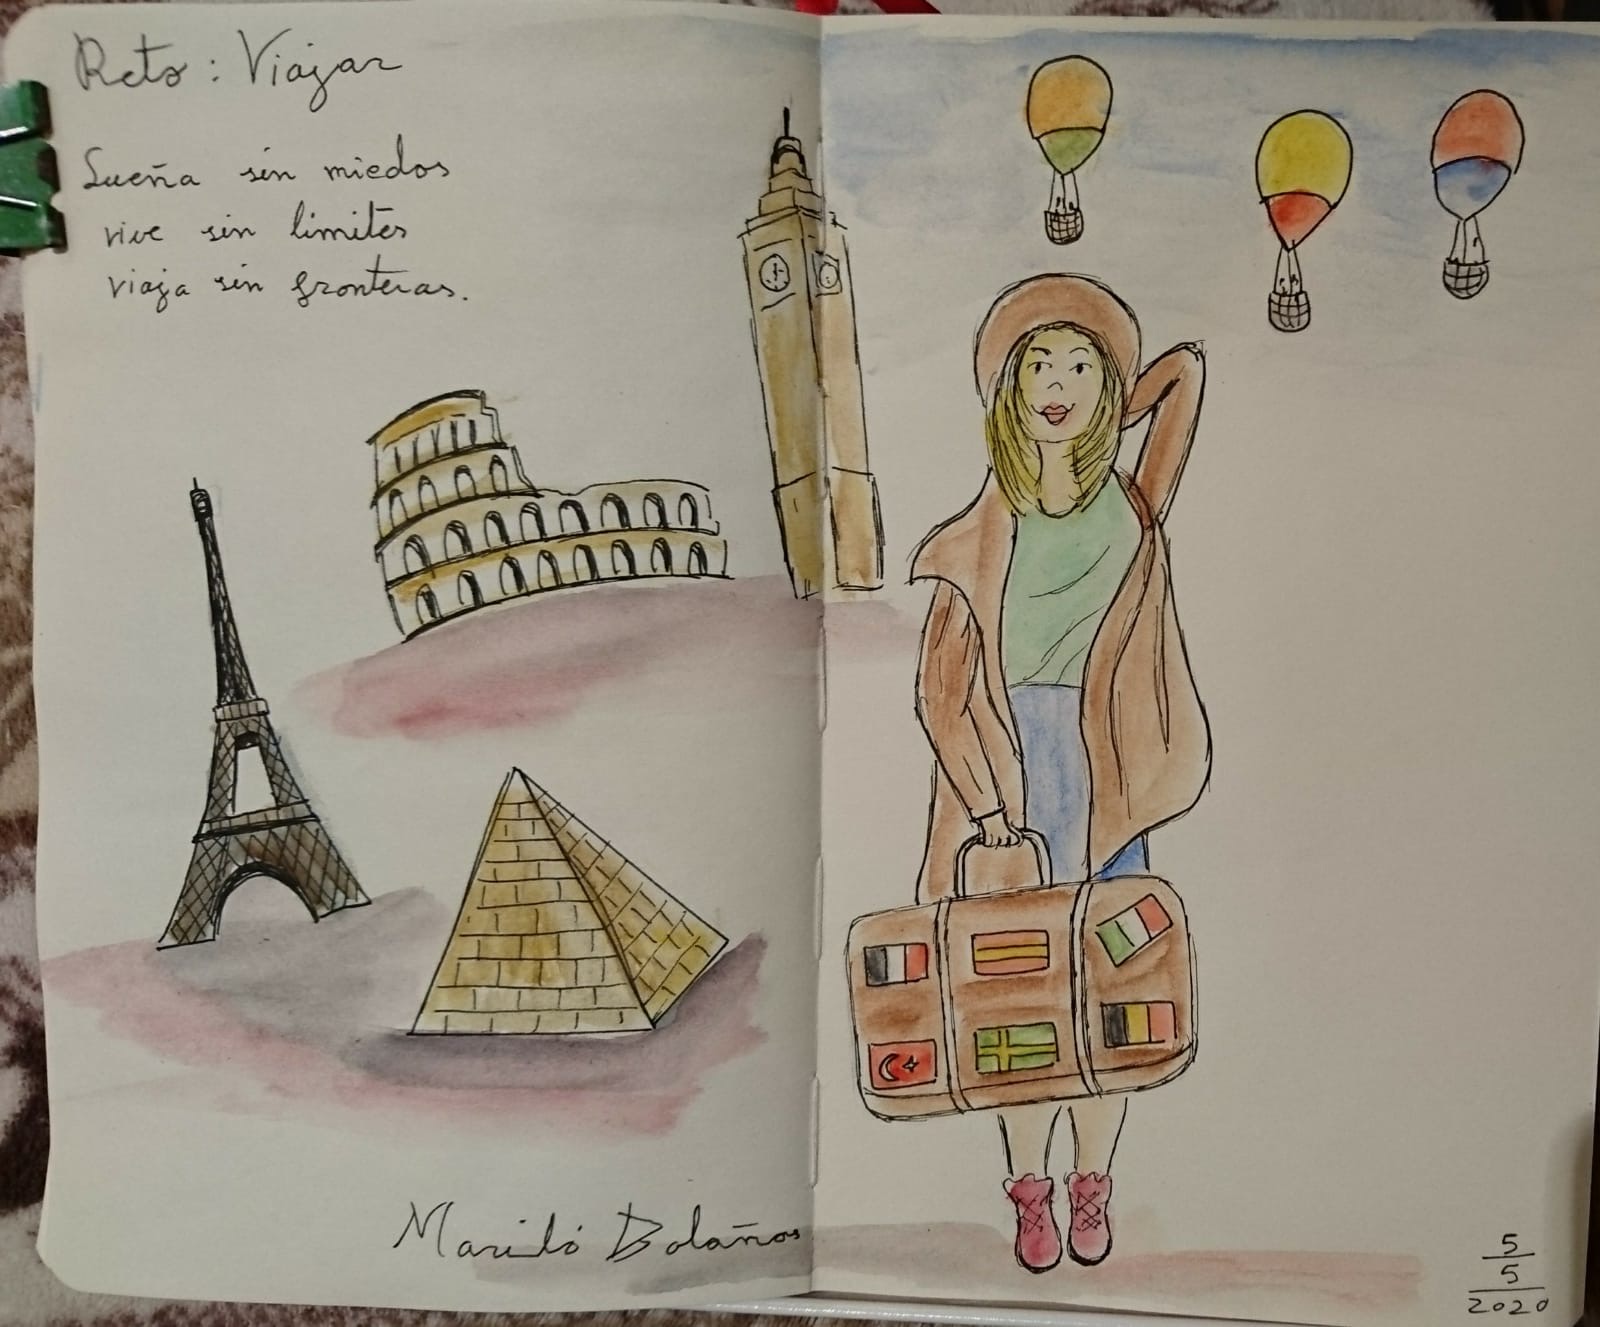 Reto: Viajar
Sueña sin miedos
vive sin limites
viaja sin fronteras.
Mariló Bolaños
5
5
2020